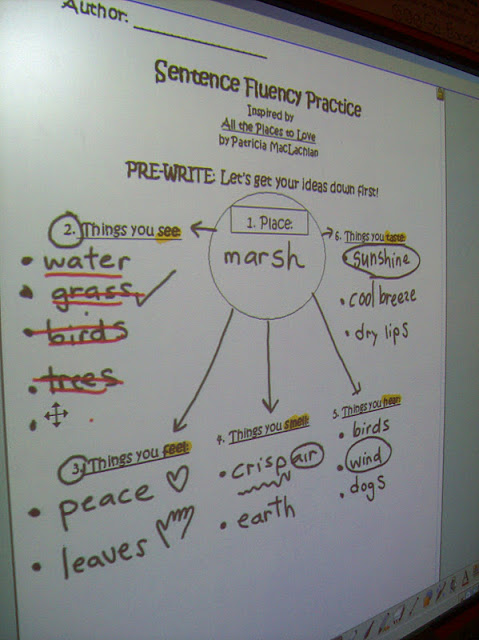 Author:
Sentence Fluency Practice
Inspired by
All the Places to Love
by Patricia MacLachlan
PRE-WRITE: Let's get your ideas down first!
1. Place:
marsh
2. Things you see:
water
grass
birds
trees
3. Things you feel:
peace
leaves
4. Things you smell:
crisp air
earth
5. Things you hear:
birds
wind
dogs
6. Things you taste:
sunshine
cool breeze
dry lips